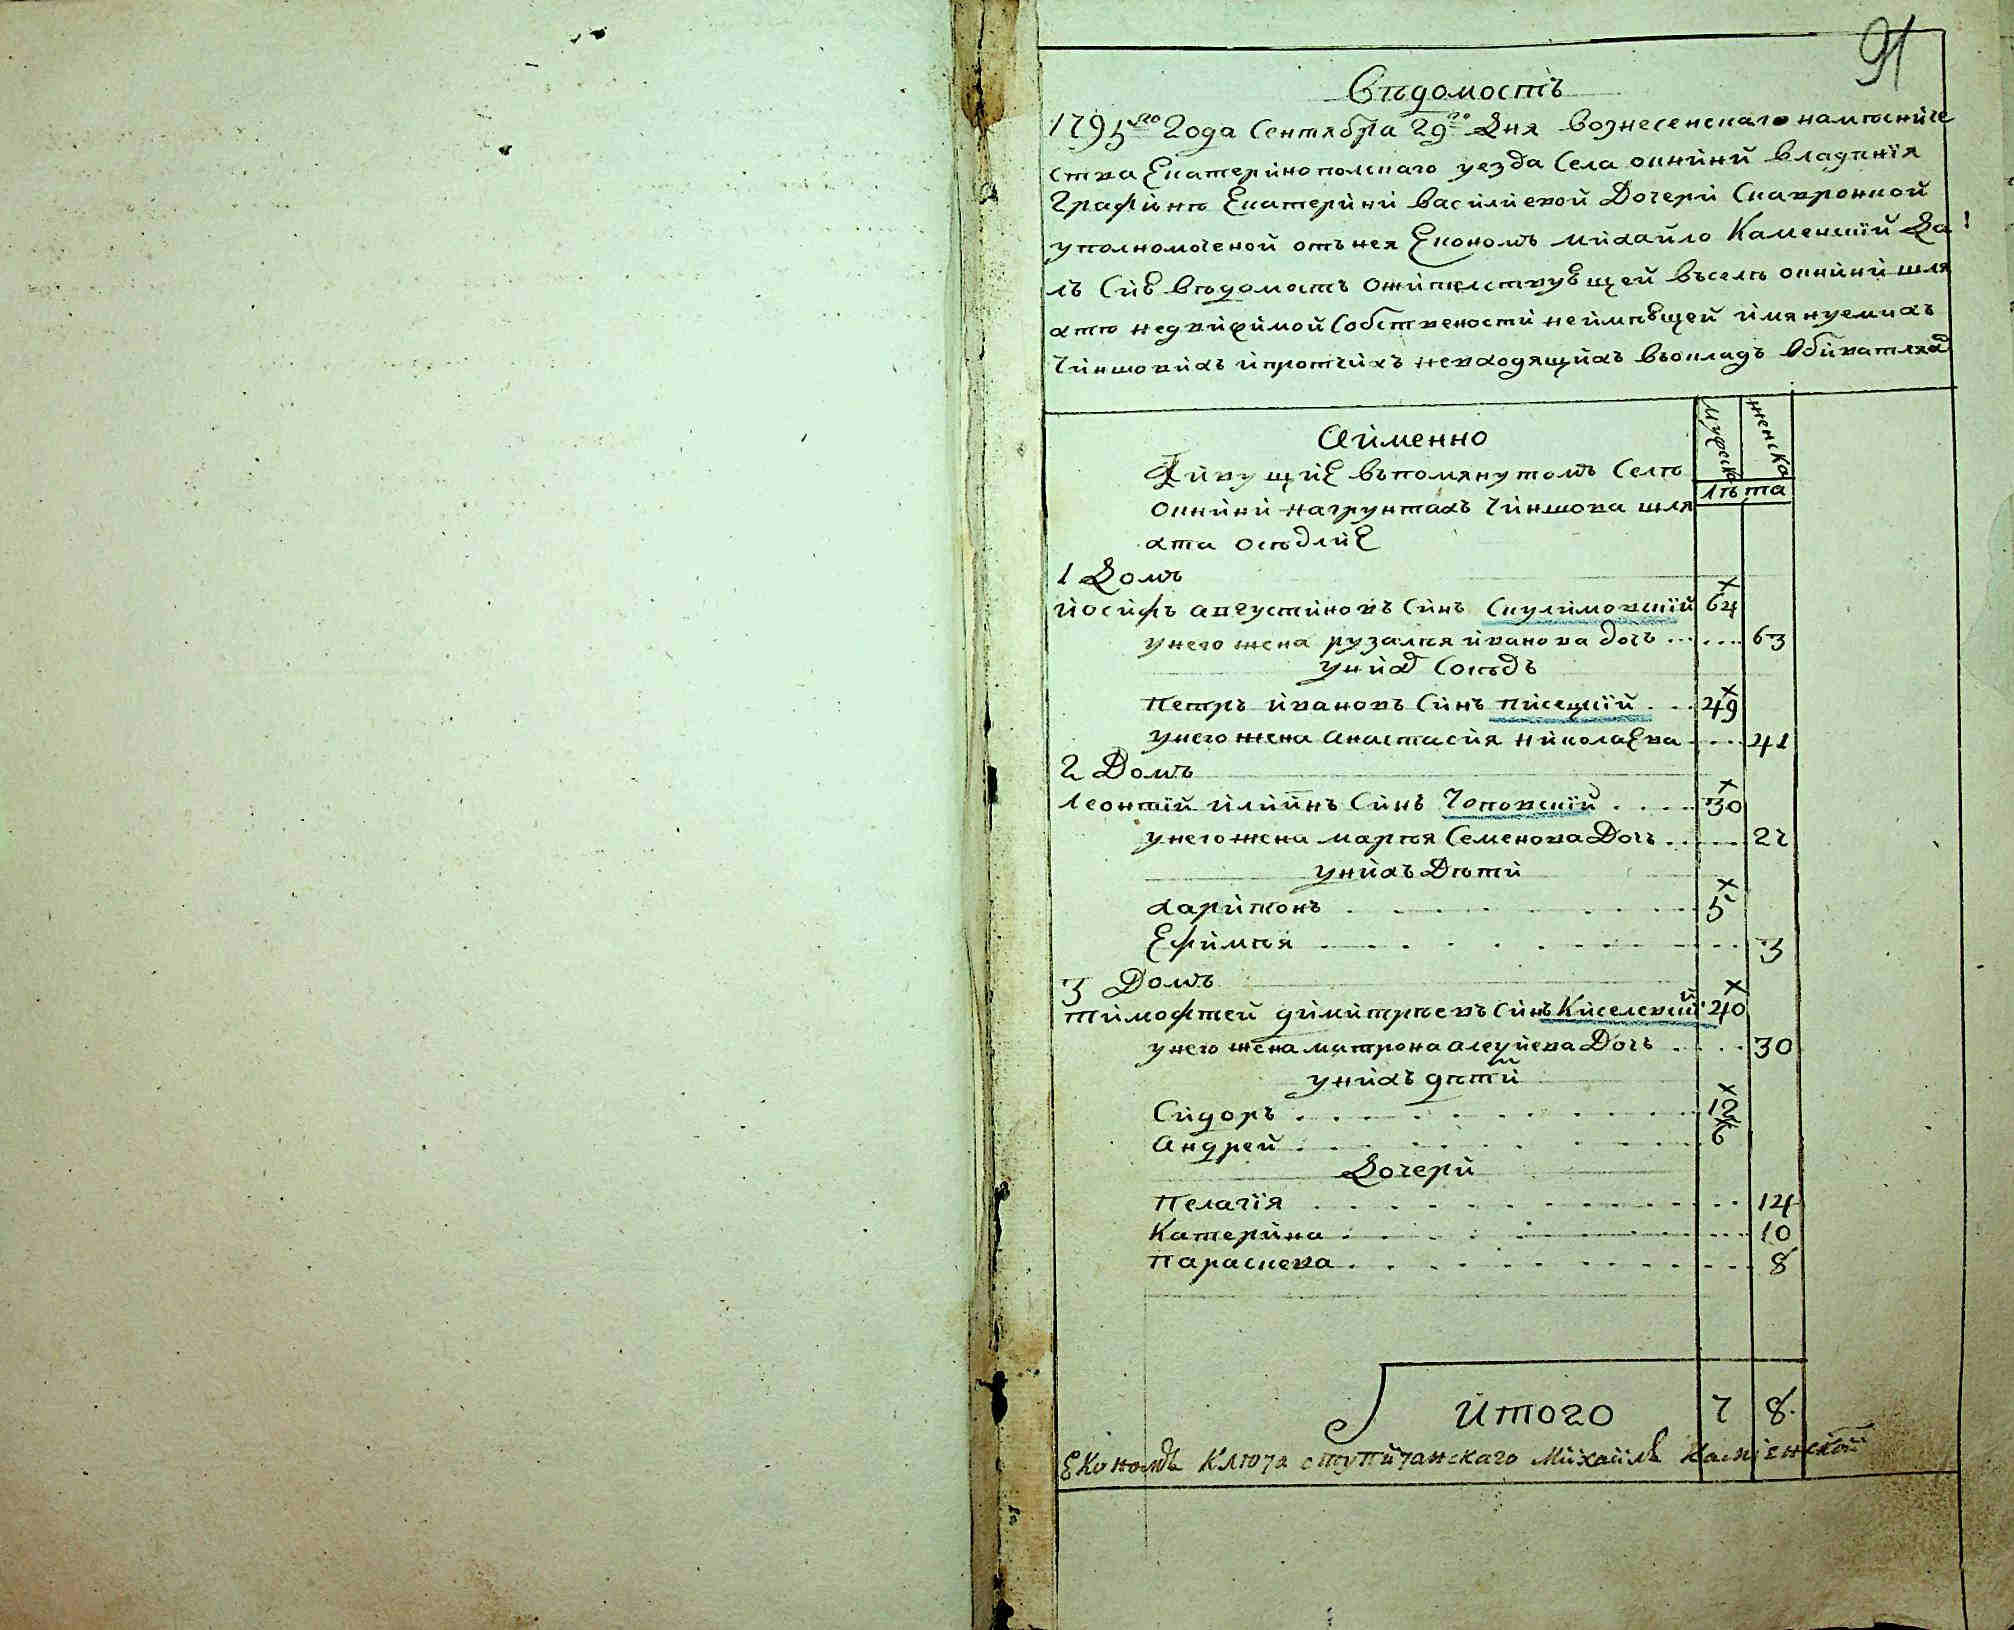 91
Вѣдомость
1795го года Сентября 29го дня вознесенскаго намѣсниче
ства Екатеринополскаго уезда Села окнини владѣния
Графинѣ Екатерини василиевой Дочери Скавронкой
уполномоченой отънея Економъ михайло Каменский Да
лъ Сию вѣдомость ожителствующей вьселѣ окнини шля
хтѣ недвижимой Собствености неимѣющей имянуемихъ
Чиншовихъ ипротчихъ невходящихъ вьокладъ обивателях
Аименно
мужеска
женска
Живущие вьпомянутомъ Селѣ
лѣта
Окнини нагрунтахъ Чиншова шля
хта осѣдлие
1 Домъ
Иосифъ августиновъ Синъ Скулимовский 64
унего жена рузалѣя иванова дочъ 63
уних Сосѣдъ
Петръ ивановъ Синъ писецкий 49
унего жена анастасия николаева 41
2 Домъ
Леонтий илиинъ Синъ Чоповский 30
унего жена марѣя Семенова Дочъ 22
унихъ Дѣти
харитонъ 5
Ефимѣя 3
3 Домъ
тимофтей димитрѣевъ Синъ Киселевский 40
унего жена матрона алеуиева Дочъ 30
унихъ дѣтй
Сидоръ 12
андрей 6
Дочери
Пелагия 14
Катерина 10
Параскева 8
Итого 7 8
Економъ Ключа ступичанскаго Михайлъ Каменской